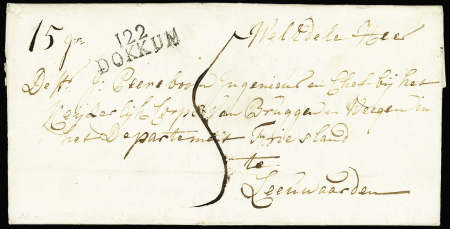 15 gr
122
DOKKUM
5
WelEdele Heer
De Hr. J: Peereboom Ingenieur en Chef bij het
Keijzerlijk Corps van Bruggen en Weegen in
het Departement Friesland
te
Leeuwaarden